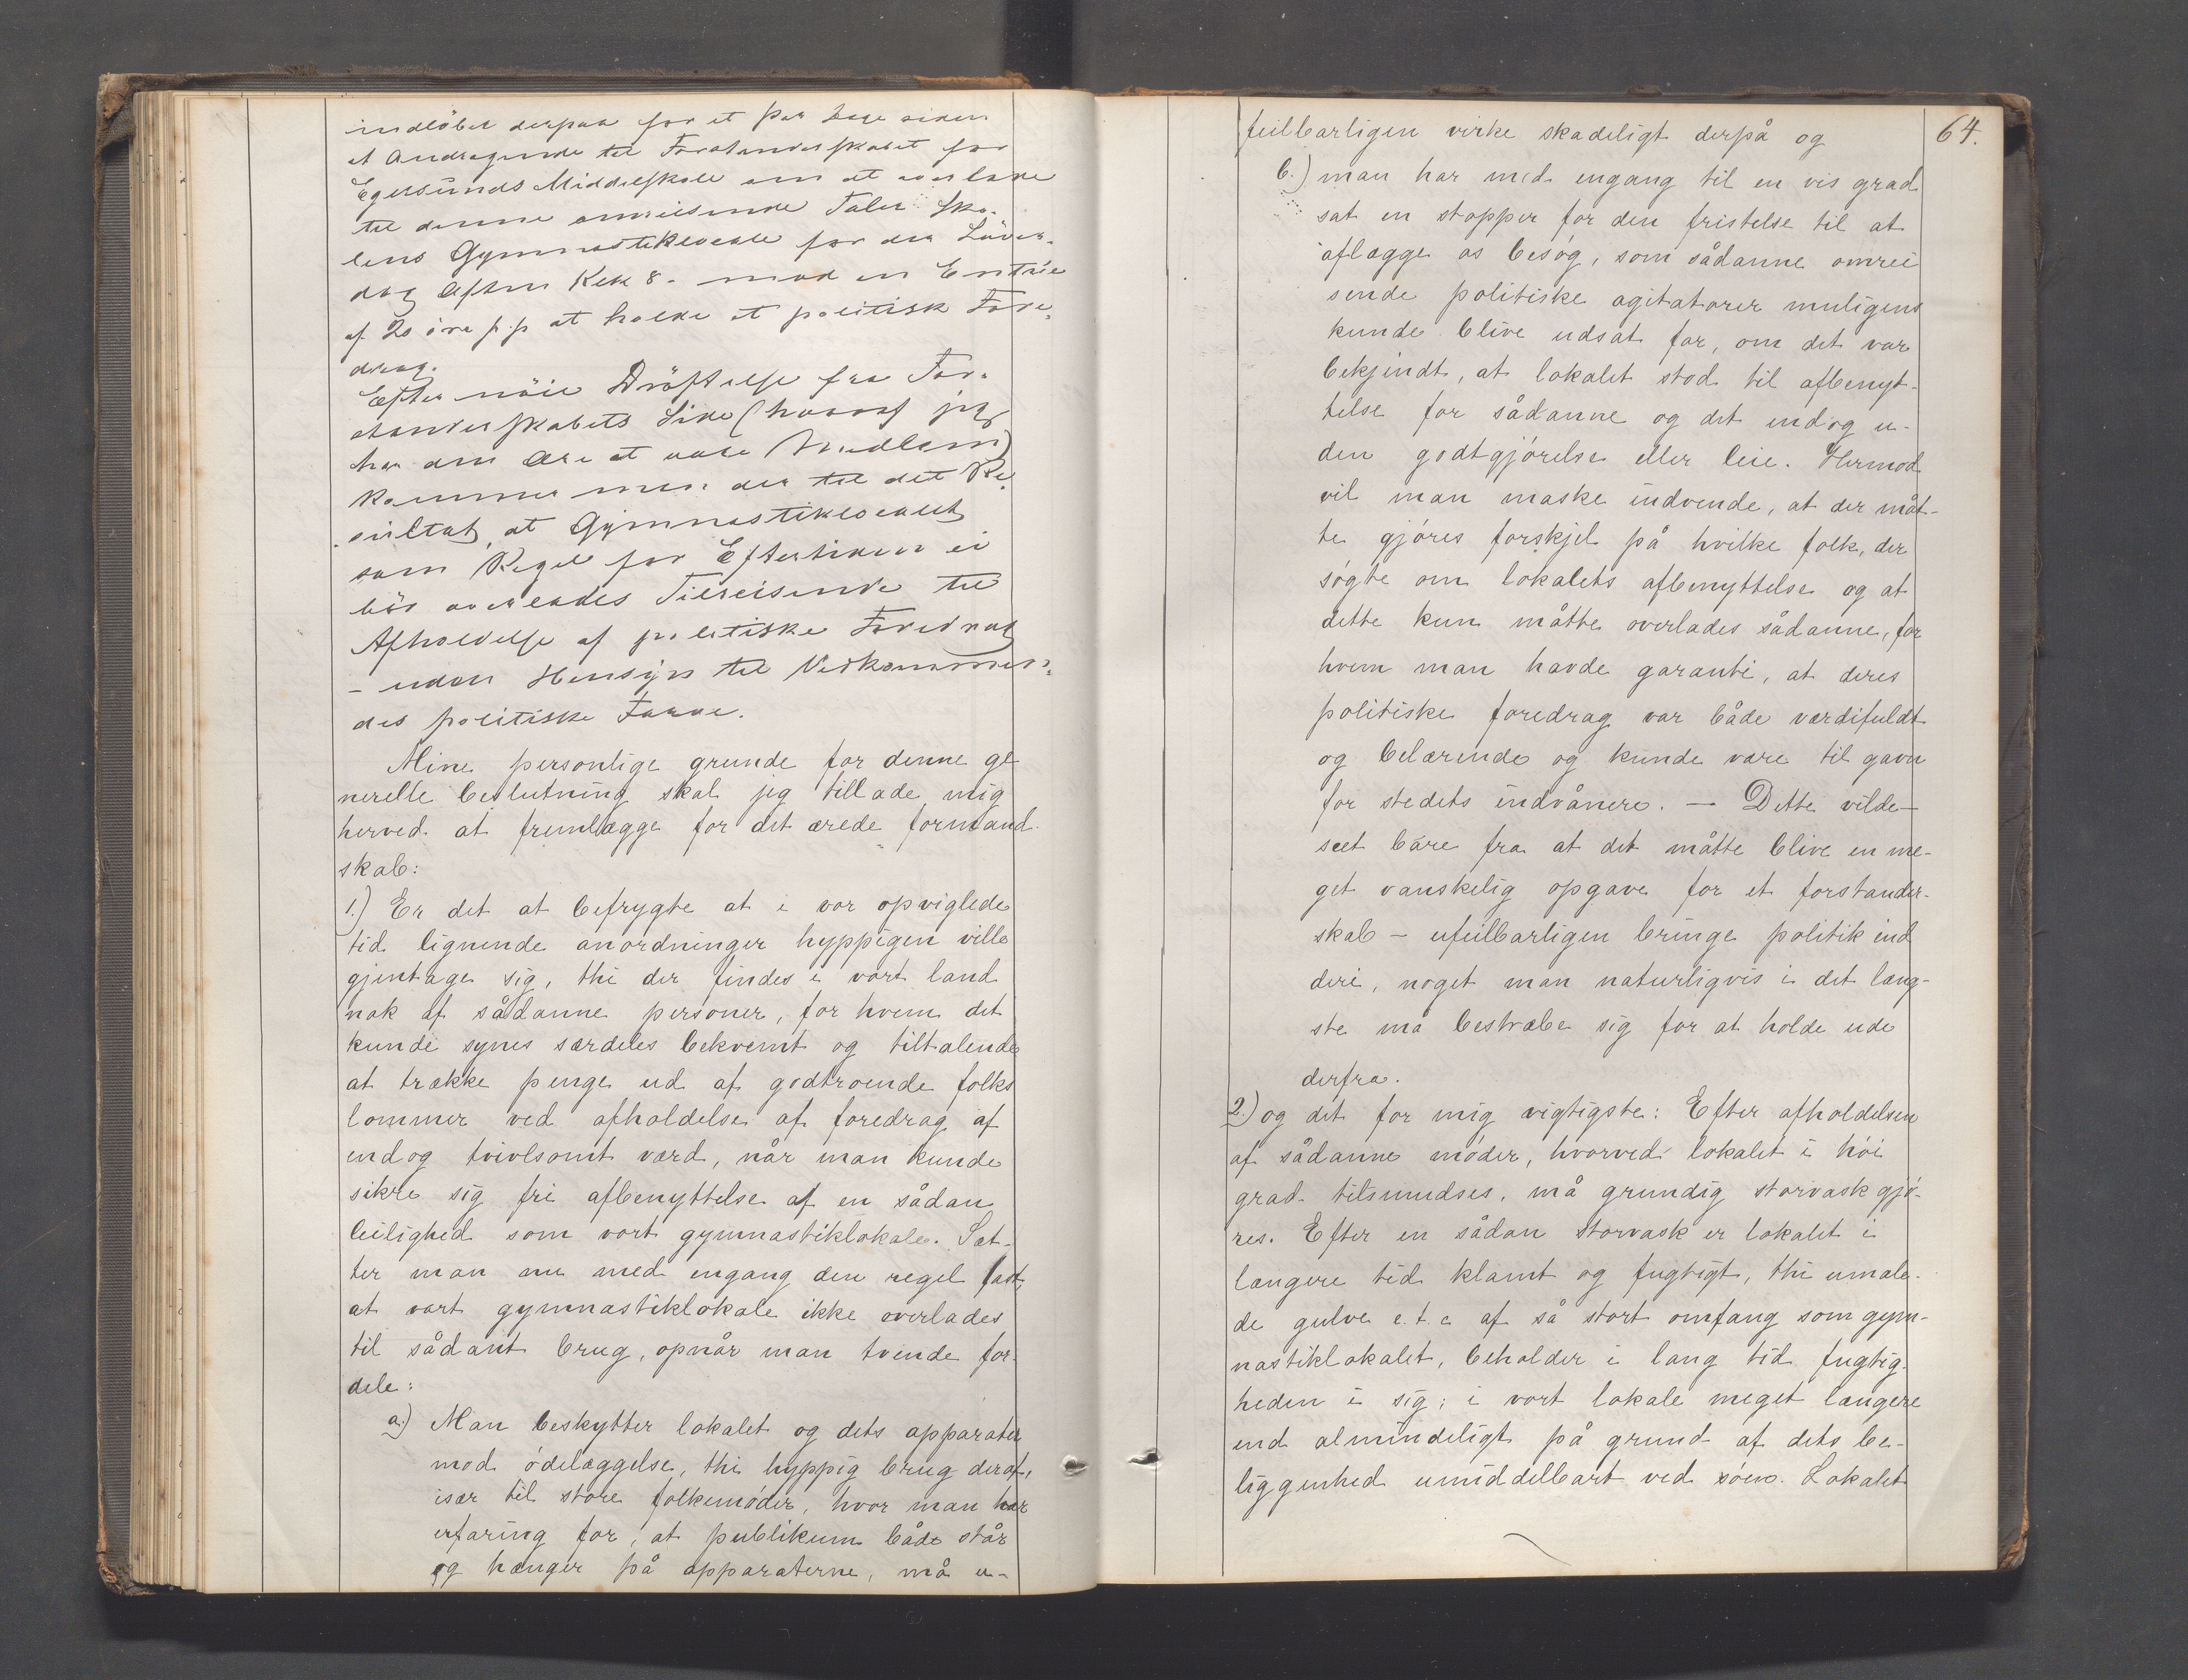 indløber derpaa for et Par Dage siden
et Andragende til Forstanderskabet for
Egersunds Middelskole om at overlade
til denne omreisende Taler Sko-
lens Gymnastiklocale for den Löver-
dag Aften Kck 8 - mod en Entrée
af 20 öre p.p at holde et politisk Fore-
drag.
Efter nöie Dröftelse fra For-
standerskabets Side (hvoraf jeg
har den Ære at være Medlem)
kommer man der til det Re-
sultat, at Gymnastiklocalet
som Regel for Eftertiden ei
bör overlades Tilreisende til
Afholdelse af politiske Foredrag
- uden Hensyn til Vedkommen-
des politiske Farve.
Mine personlige grunde for denne ge
nerelle beslutning skal jeg tillade mig
herved at fremlægge for det ærede formand-
skab:
1.) Er det at befrygte at i vor opviglede
tid lignende anordninger hyppigen ville
gjentage sig, thi der findes i vort land
nok af sådanne personer, for hvem det
kunde synes særdeles bekvemt og tiltalende
at trække penge ud af godtroende folks
lommer ved afholdelse af foredrag af
endog tvivlsomt værd, når man kunde
sikre sig fri afbenyttelse af en sådan
leilighed som vort gymnastiklokale. Sæt-
ter man nu med engang den regel fast,
at vort gymnastiklokale ikke overlades
til sådant brug, opnår man tvende for-
dele:
a.) Man beskytter lokalet og dets apparater
mod ödelæggelse, thi hyppig brug deraf,
især til store folkemöder, hvor man har
erfaring for, at publikum både står
og hænger på apparaterne, må u-
feilbarligen virke skadeligt derpå og
64.
b.) man har med engang til en vis grad
sat en stopper for den fristelse til at
aflægge os besög, som sådanne omrei
sende politiske agitatorer muligens
kunde blive udsat for, om det var
bekjendt, at lokalet stod til afbenyt-
telse for sådanne og det endog u-
den godtgjörelse eller leie. Hermod
vil man maske indvende, at der måt-
te gjöres forskjel på hvilke folk, der
sögte om lokalets afbenyttelse og at
dette kun måtte overlades sådanne, for
hvem man havde garanti, at deres
politiske foredrag var både værdifuldt
og belærende og kunde være til gavn
for stedets indvånere. — Dette vilde -
seet bare fra at det måtte blive en me-
get vanskelig opgave for et forstander-
skab - ufeilbarligen bringe politik ind
deri, noget man naturligvis i det læng-
ste må bestræbe sig for at holde ude
derfra.
2.) og det for mig vigtigste: Efter afholdelsen
af sådanne möder, hvorved lokalet i höi
grad tilsmudses, må grundig storvask gjö-
res. Efter en sådan storvask er lokalet i
længere tid klamt og fugtigt, thi umale-
de gulve e.t.c af så stort omfang som gym-
nastiklokalet, beholder i lang tid fugtig-
heden i sig; i vort lokale meget længere
end almindeligt på grund af dets be-
liggenhed umiddelbart ved söen. Lokalet